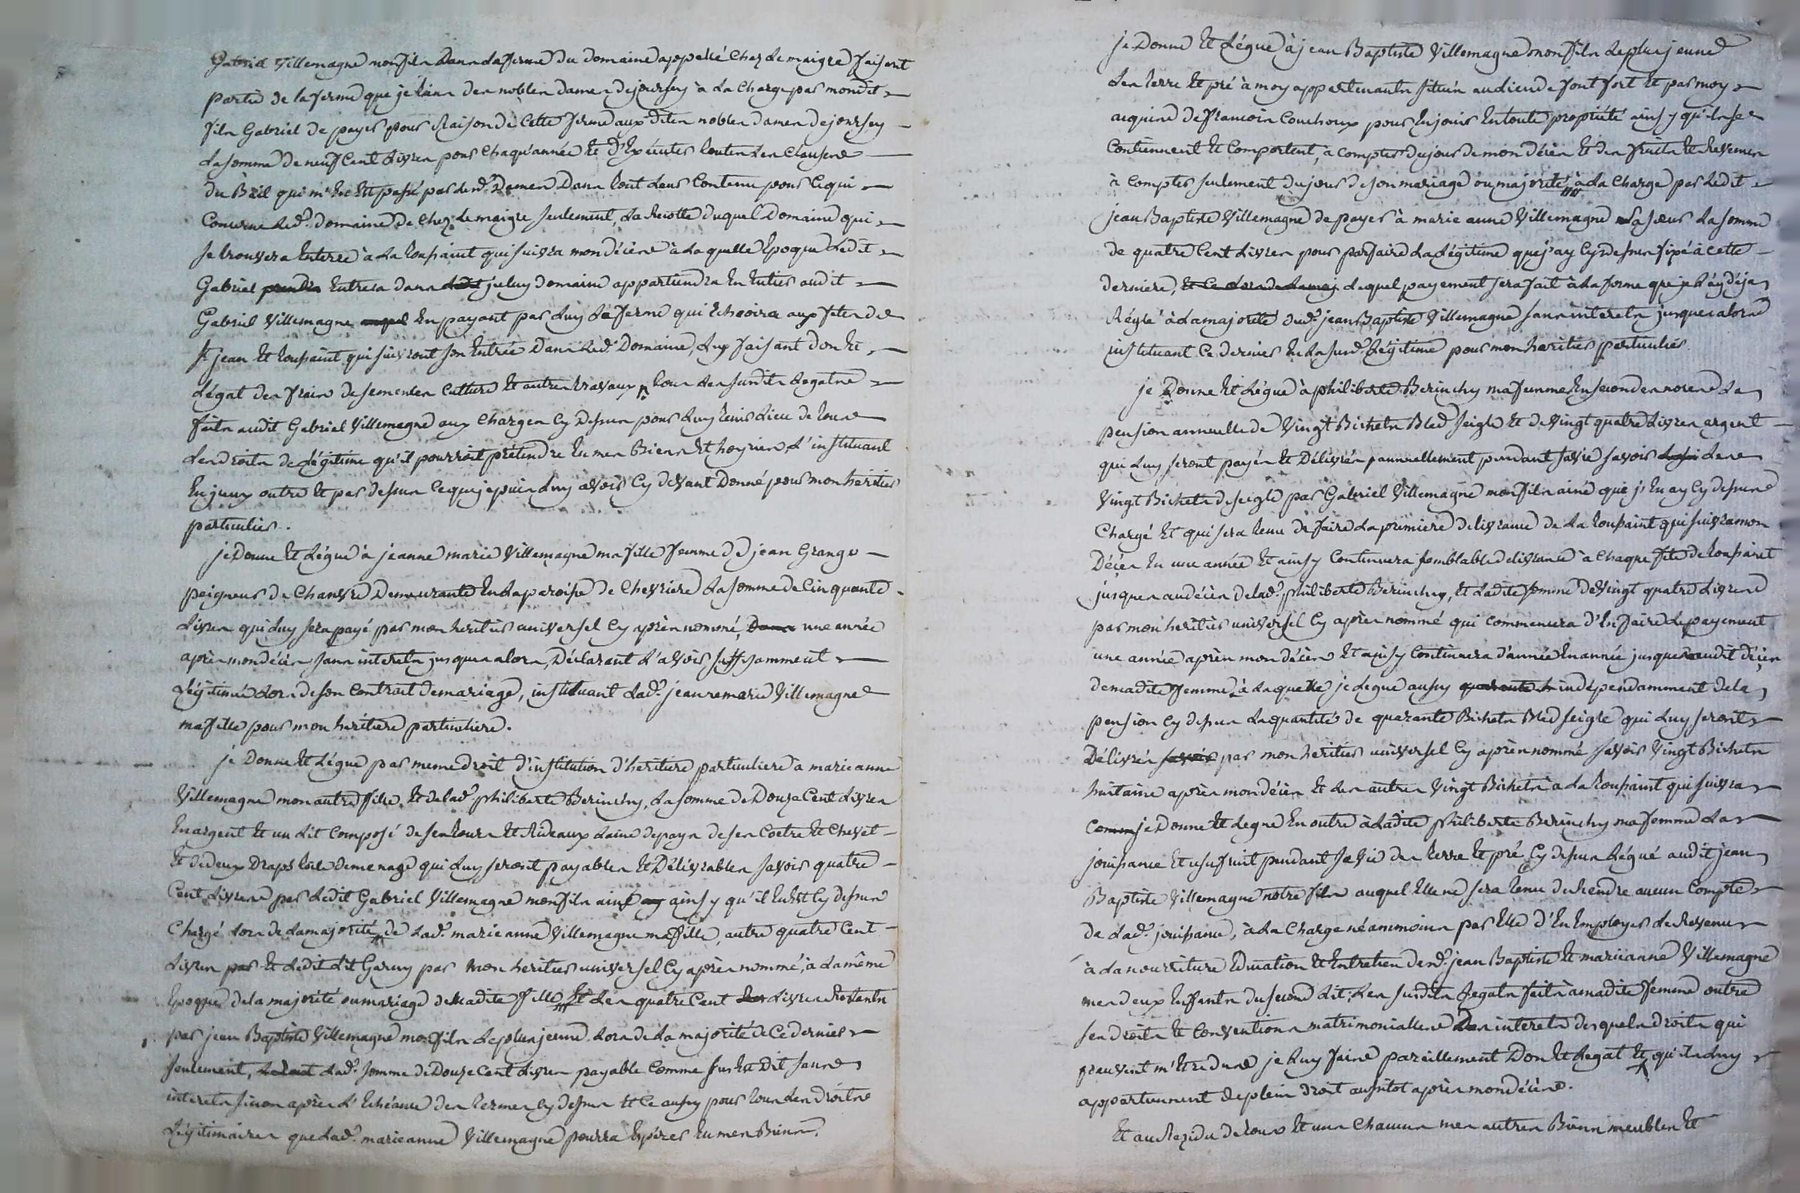 Gabriel Villemagne mon fils Dans la ferme du domaine appellé Chez Lemaigre faisant
partie de la ferme que je tiens des nobles dames de joursey à la charge par mondit
fils Gabriel de payer pour Raison de cette ferme aux dites nobles dames de joursey
la somme de neuf Cent Livres pour chaqu'année Et d'Exécuter toutes les clauses
du Bail qui m'En Est passé par lesd. Dames Dans tout leur Contenu pour ce qui
Concerne led. domaine de Chez Lemaigre seulement, la Recolte duquel Domaine qui
se trouvera Enterre à la toussaint qui suivra mon décès à laquelle Epoque ledit
Gabriel prendra Entrera dans ledit jceluy domaine appartiendra En Entier audit
Gabriel Villemagne En payant par luy la ferme qui Echoira aux fetes de
St jean Et toussaint qui suivront son Entrée Dans led. Domaine, luy faisant don Et
Légat des frais de semences Culture Et autres travaux, tous les susdits Legats
faits audit Gabriel Villemagne aux charges Cy Dessus pour luy tenir Lieu de tous
les droits de légitime qu'il pourroit prétendre En mes Biens Et hoyries L'instituant
En jceux outre Et par dessus ce que je puis luy avoir Cy devant Donné pour mon héritier
particulier.
je Donne Et Légue à jeanne marie Villemagne ma fille femme de jean Grange
peigneur de Chanvre Demeurante En la paroisse de Chevriere la somme de Cinquante
Livres qui luy sera payé par mon heritier universel Cy après nommé, Dans une année
après mon décès, sans interets jusques alors, Déclarant l'avoir suffisamment
Légitimée Lors de son Contrat de mariage, instituant lad. jeanne marie Villemagne
ma fille pour mon heritiere particuliere.
je Donne Et Légue par meme droit d'institution d'heritiere particuliere a marie anne
Villemagne mon autre fille, Et de lad. philiberte Berinchy, la somme de Douze Cent Livres
En argent Et un Lit Composé de ses tours Et Rideaux laine de pays de ses Coetre Et Chevet
Et de deux Draps toile de menage qui luy seront payables Et Délivrables savoir quatre
Cent Livres par ledit Gabriel Villemagne mon fils ainé ainsy qu'il En Est Cy dessus
Chargé Lors de la majorité de lad. marie anne Villemagne ma fille, autre quatre Cent
Livres par Et ledit Lit Garny par mon heritier universel Cy après nommé, à la même
Epoque de la majorité ou mariage de madite fille Et les quatre Cent Livres Restants
par jean Baptiste Villemagne mon fils le plus jeune Lors de la majorité de ce dernier
seulement, lad. somme de Douze Cent Livres payable Comme sus Est Dit sans
interets sinon après l'Echéance des termes Cy dessus Et Ce aussy pour tous les droits
Légitimaires que lad. marie anne Villemagne pourra Espérer En mes Biens.
je Donne Et Légue à jean Baptiste Villemagne mon fils le plus jeune
les terre Et pré à moy appartenants situés au lieu de font fort Et par moy
acquis de francois Couchoux pour En jouir En toute propriété ainsy qu'ils se
Contiennent Et Comportent, à compter du jour de mon décès Et des fruits Et Revenus
à Compter seulement du jour de son mariage ou majorité, à la Charge par ledit
jean Baptiste Villemagne de payer à marie anne Villemagne sa sœur la somme
de quatre Cent Livres pour parfaire la Légitime que j'ay Cy dessus fixé à cette
derniere, lequel payement sera fait à la forme que je l'ay déja
Réglé à la majorité dud. jean Baptiste Villemagne sans interets jusques alors
instituant ce dernier En la susd. Légitime pour mon heritier particulier
je Donne Et Légue à philiberte Berinchy ma femme En secondes noces La
pension annuelle de Vingt Bichets Bled seigle Et de Vingt quatre Livres argent
qui luy seront payés Et Délivrés annuellement pendant sa vie savoir les
Vingt Bichets de seigle par Gabriel Villemagne mon fils ainé que j'En ay Cy dessus
Chargé Et qui sera tenu de faire la premiere delivrance de la toussaint qui suivra mon
Décès En une année Et ainsy Continuera semblable delivrance à chaque fete de toussaint
jusques au décès de lad. philiberte Berinchy, Et ladite somme de Vingt quatre Livres
par mon heritier universel Cy après nommé qui commencera d'En faire le payement
une année après mon décès Et ainsy Continuera d'année En année jusques audit décès
de madite femme, à laquelle je legue aussy independamment de la
pension Cy dessus la quantité de quarante Bichets Bled seigle qui luy seront
Délivrés savoir par mon heritier universel Cy après nommé savoir Vingt Bichets
huitaine après mon décès Et les autres Vingt Bichets a la toussaint qui suivra
Comme je Donne Et Legue En outre à ladite philiberte Berinchy ma femme La
jouissance Et usufruit pendant sa vie des terre Et pré Cy dessus Légué audit jean
Baptiste Villemagne notre fils auquel Elle ne sera tenue de Rendre aucun Compte
de lad. jouissance, à la Charge néanmoins par Elle d'En Employer le Revenu
à la nourriture Education Et Entretien desd. jean Baptiste Et marieanne Villemagne
mes deux Enfants du second Lit; les susdits Legats faits à madite femme outre
ses droits Et Conventions matrimonialles Des interets desquels droits qui
peuvent m'Etre dus je luy fais pareillement Don Et Legat Et qu'ils luy
appartiennent de plein droit aussitot après mon décès.
Et au Rezidu de tous Et uns Chacuns mes autres Biens meubles Et